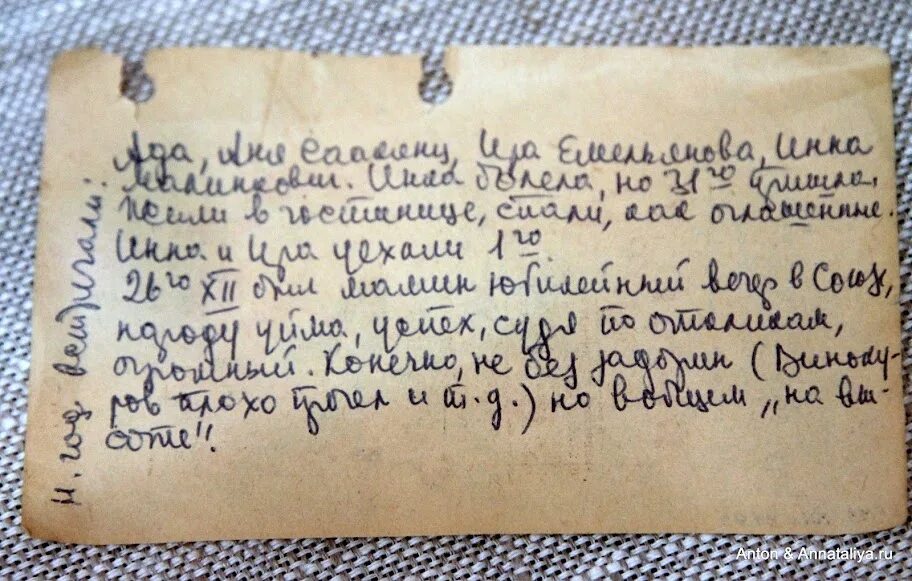 Н. год встречали:
Ада, Аня Саакянц, Ира Емельянова, Инна
Малинкович. Инна болела, но 31го пришла.
Жили в гостинице, спали, как оглашенные.
Инна и Ира уехали 1го.
26го XII был мамин юбилейный вечер в Союзе,
народу уйма, успех, судя по откликам,
огромный. Конечно, не без задорин (Виноку-
ров плохо прочел и т.д.) но в общем „на вы-
соте".
Anton & Annataliya.ru